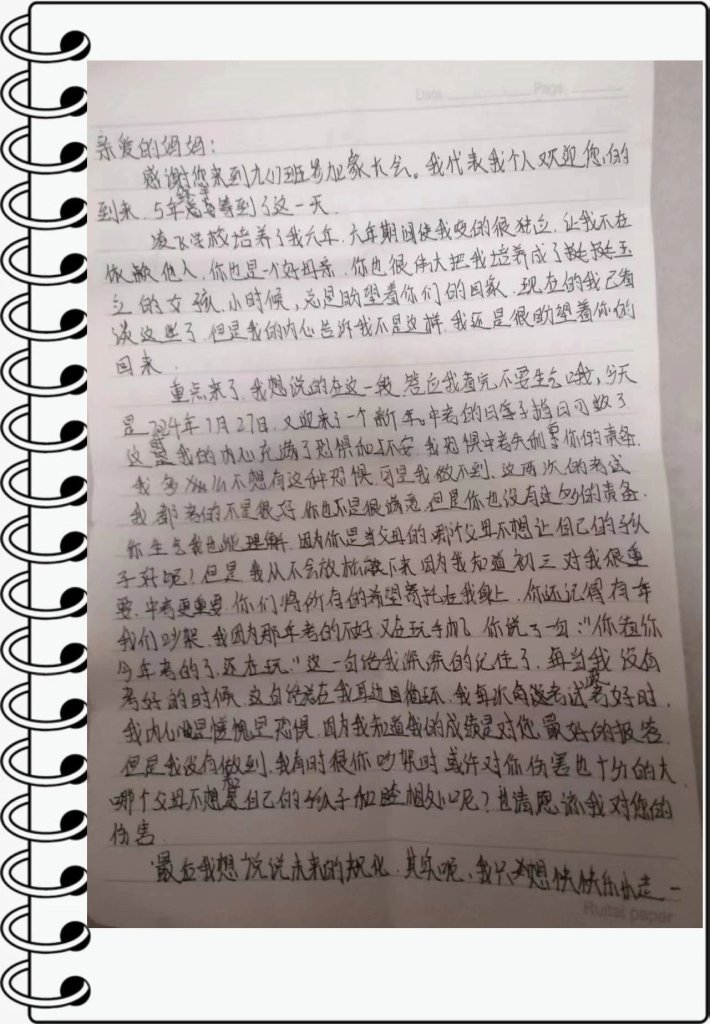 Date Page
亲爱的妈妈:
感谢您来到九(1)班参加家大会。我代表我个人欢迎您的
到来. 5年终等到了这一天.
凌飞学校培养了我六年.六年期间使我变的很独立.让我不在
依赖他人.你也是一个好母亲.你也很伟大把我培养成了挺挺玉
立的女孩.小时候,总是盼望着你们的回家.现在的我已看
淡这些了.但是我的内心告诉我不是这样.我还是很盼望着你的
回来.
重点来了.我想说的在这一段.答应我看完不要生气哦,今天
是2024年1月27日.又迎来了一个新年.中考的日子指日可数了
这我的内心充满了恐惧加上不安.我恐惧中考失利你的责备.
我多么不想有这种恐惧.可是我做不到.这两次的考试
我都考的不是很好.你也不是很满意.但是你也没有过多的责备.
你生气我也能理解.因为你是当父母的.哪个父母不想让自己的孩
子好呢?但是我从不会放松下来.因为我知道初三对我很重
要.中考更重要.你们将所有的希望寄托在我身上.你还记得有一年
我们吵架.我因为那年考的不好.又在玩手机.你说了一句:"你看你
今年考的了.还在玩."这一句话我深深的记住了.每当我没有
考好的时候.这句话总在我耳边循环.我每次考试考好时.
我内心愧是恐惧.因为我知道我的成绩是对您最好的报答.
但是我没有做到.我有时很你吵架时.或许对你伤害也十分的大.
哪个父母不想自己的孩子和睦相处呢?也请愿谅我对您的
伤害.
最后我想说说未来的规化.其实呢,我只想快快乐乐走一
Huitai paper